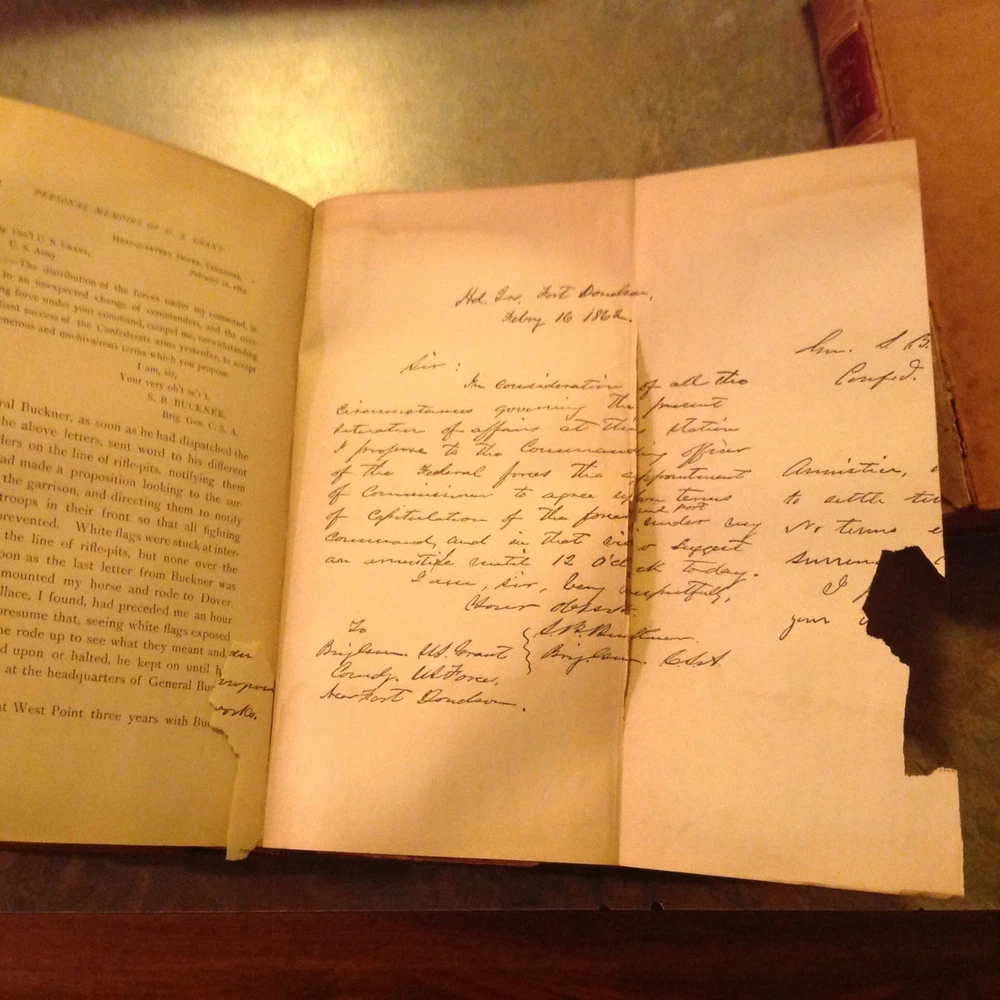 PERSONAL MEMOIRS OF U. S. GRANT
HEADQUARTERS, DOVER, TENNESSEE,
February 16, 1862.
GEN'L U. S. GRANT,
U. S. Army
:—The distribution of the forces under my command, in
to an unexpected change of commanders, and the over-
ng force under your command, compel me, notwithstanding
liant success of the Confederate arms yesterday, to accept
enerous and unchivalrous terms which you propose.
I am, sir,
Your very ob't se'v't,
S. B. BUCKNER,
Brig. Gen. C. S. A.
ral Buckner, as soon as he had dispatched the
the above letters, sent word to his different
ders on the line of rifle-pits, notifying them
ad made a proposition looking to the sur-
the garrison, and directing them to notify
troops in their front so that all fighting
prevented. White flags were stuck at inter-
the line of rifle-pits, but none over the
oon as the last letter from Buckner was
mounted my horse and rode to Dover.
llace, I found, had preceded me an hour
presume that, seeing white flags exposed
he rode up to see what they meant and
d upon or halted, he kept on until h
at the headquarters of General Buc
at West Point three years with Buc
propose
works.
Hd Qrs. Fort Donelson,
Feby 16 1862.
Sir:
In consideration of all the
circumstances governing the present
situation of affairs at this station
I propose to the Commanding officer
of the Federal forces the appointment
of Commissioners to agree upon terms
of capitulation of the forces and fort under my
command, and in that view suggest
an armistice until 12 o'clock today.
I am, sir, very respectfully,
Your obt svt.
S. B. Buckner.
Brig Gen. C.S.A.
To
Brig Gen. U.S. Grant
Comdg. US Forces,
Near Fort Donelson.
Gen. S. B.
Confed.
Armistice,
to settle
No terms
surren
I
your